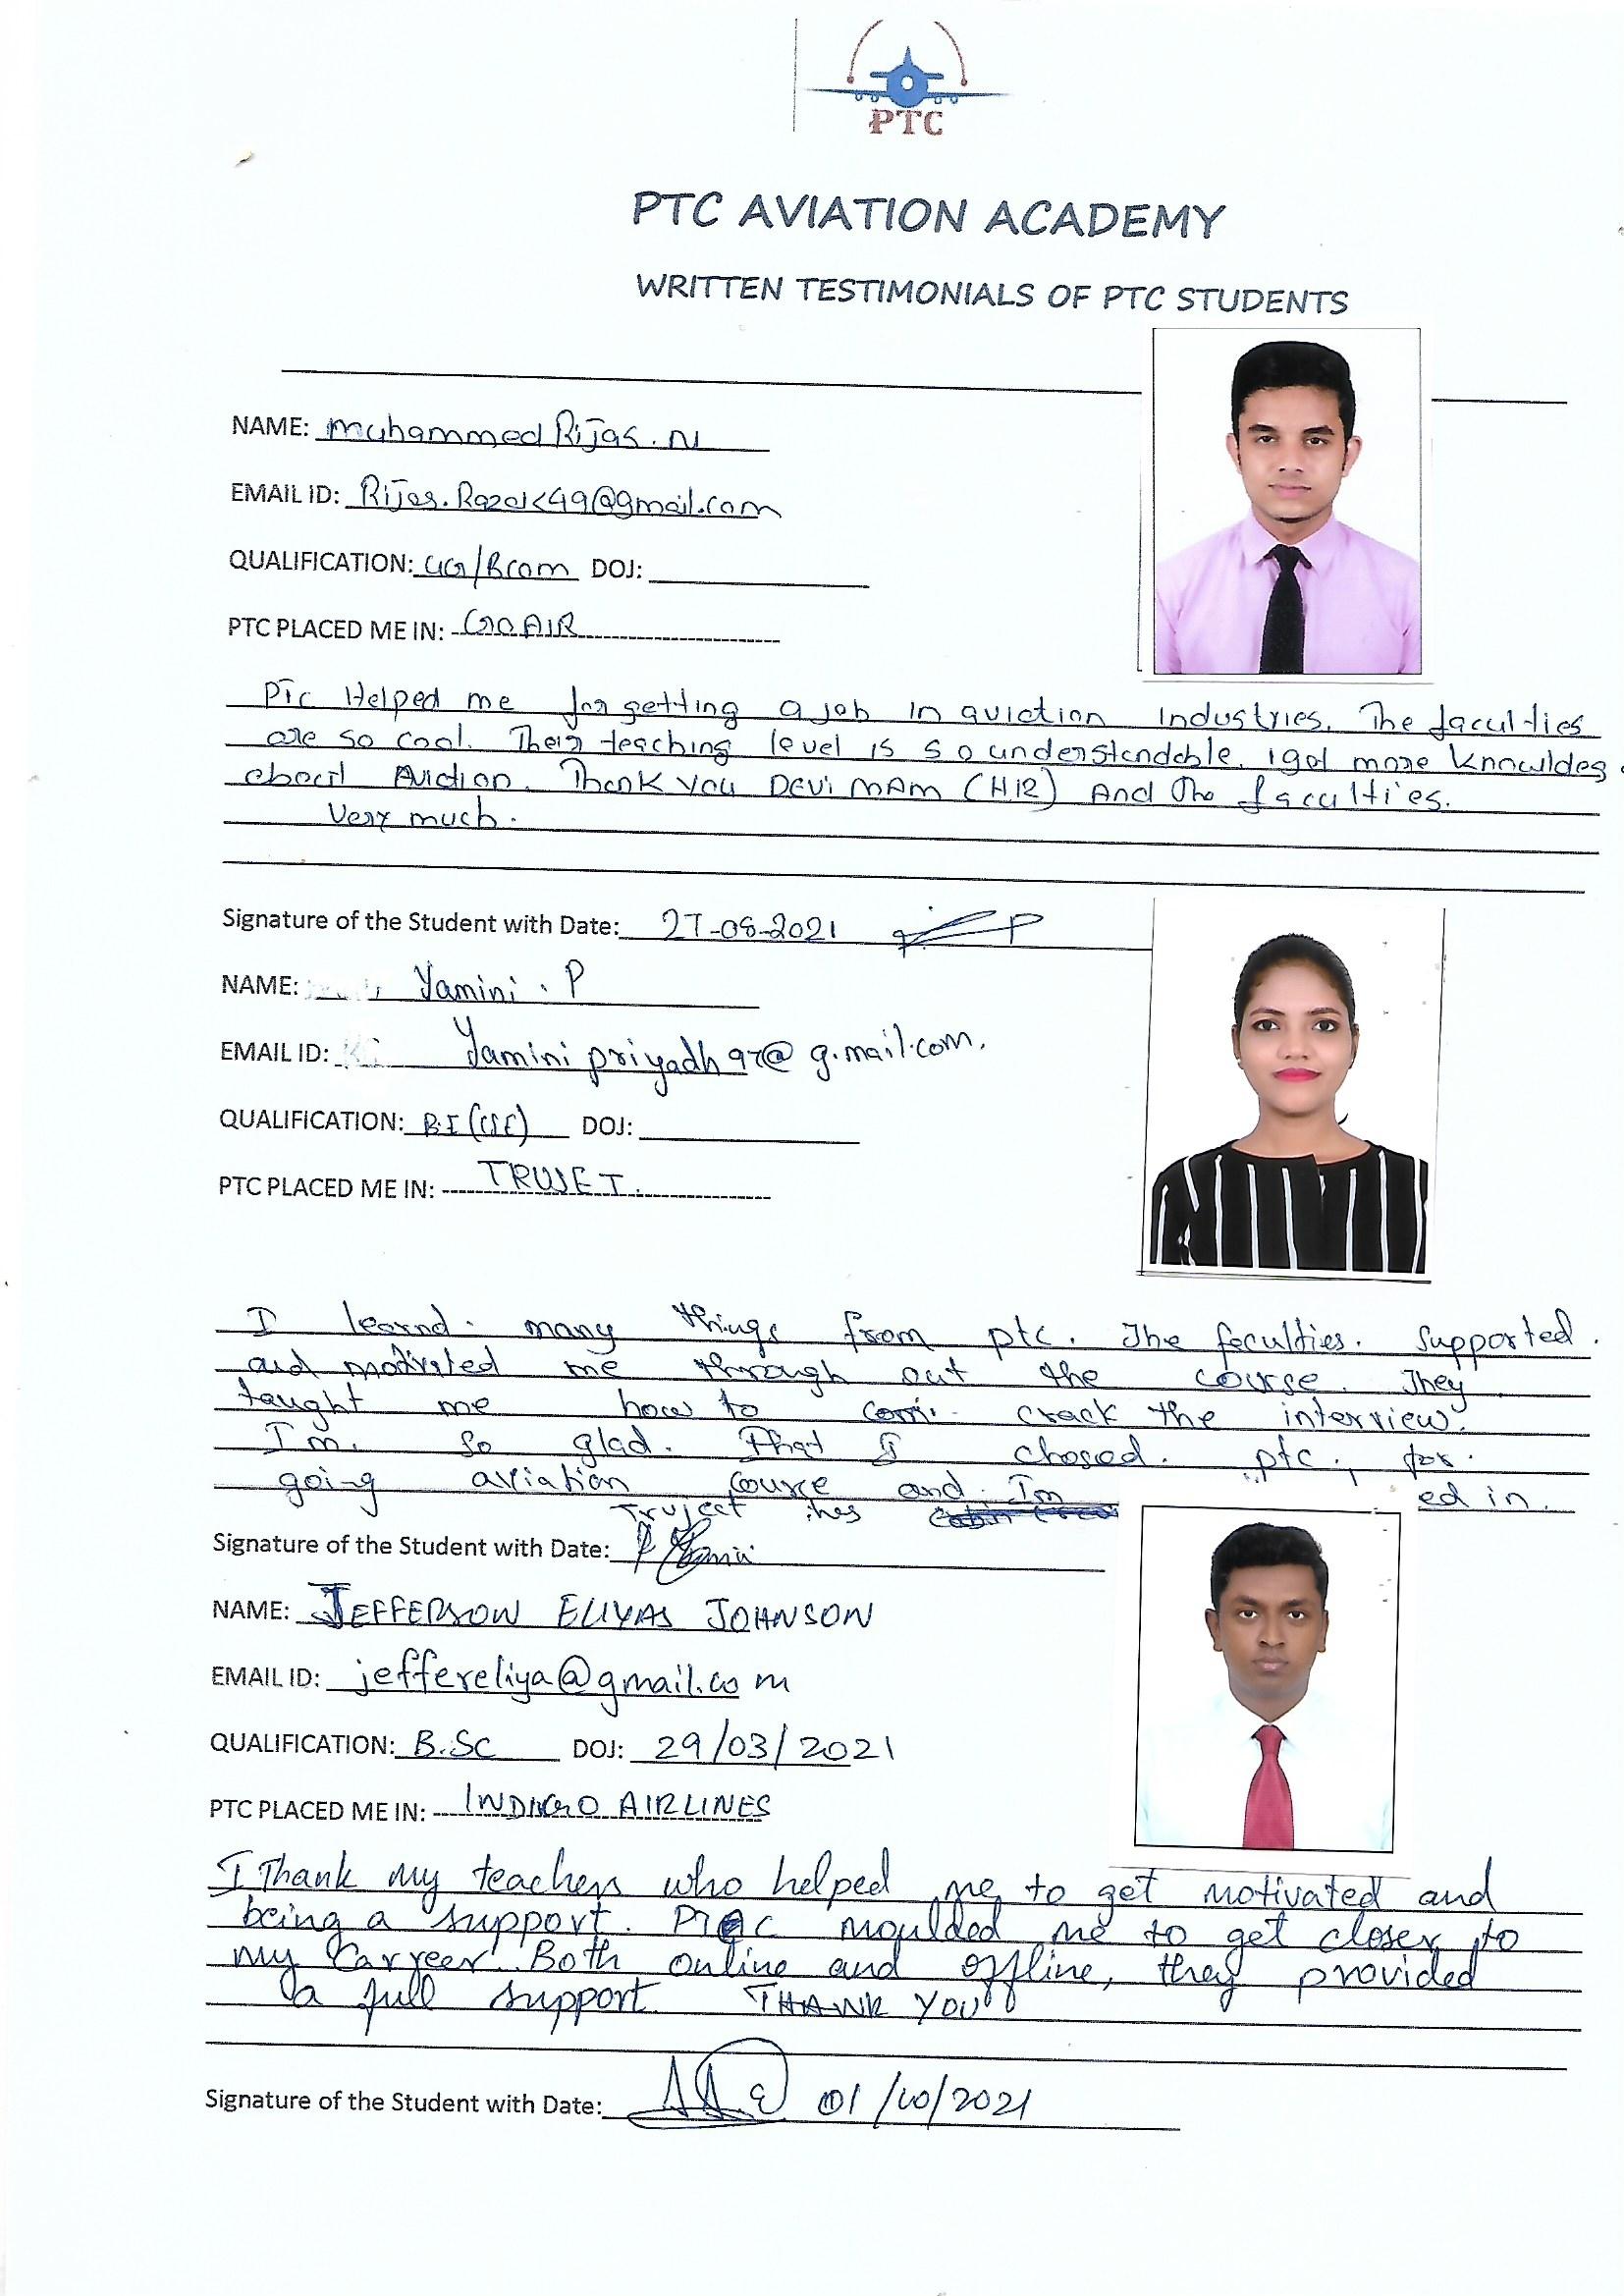 PTC
PTC AVIATION ACADEMY
WRITTEN TESTIMONIALS OF PTC STUDENTS
NAME: Muhammed Rijas. N
EMAIL ID: Rijas.Razak49@gmail.com
QUALIFICATION: UG/Bcom DOJ:
PTC PLACED ME IN: GO AIR
PTC Helped me for getting a job in aviation industries. The faculties
are so cool. Their teaching level is so understandable. i got more knowldeg
about Aviation. Thank you Devi MAM (HR) And The faculties.
Very much.
Signature of the Student with Date: 27-08-2021
NAME: Yamini . P
EMAIL ID: Yamini priyadh97@g.mail.com.
QUALIFICATION: B.E (CSE) DOJ:
PTC PLACED ME IN: TRUJET.
I learnd. many things from ptc. The faculties. supported.
and motivated me through out the course. They
taught me how to crack the interview.
I'm. so glad. That I chosed. ptc, for.
going aviation course and. I'm ed in.
Trujet
Signature of the Student with Date:
NAME: JEFFERSON ELIYAS JOHNSON
EMAIL ID: jeffereliya@gmail.com
QUALIFICATION: B.Sc DOJ: 29/03/2021
PTC PLACED ME IN: INDIGO AIRLINES
I Thank my teachers who helped me to get motivated and
being a support. PTC moulded me to get closer to
my Carreer. Both online and offline, they provided
a full support. THANK YOU
Signature of the Student with Date: 01/10/2021